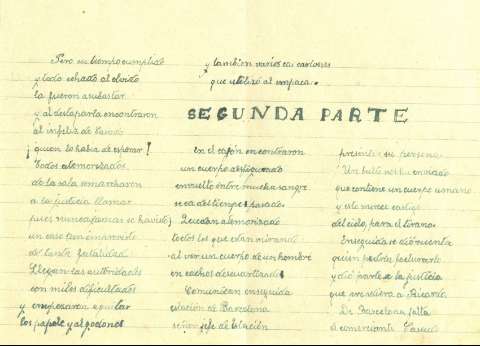 Pero su tiempo cumplido
y todo echado al olvido
la fueron a subastar
y al destaparla encontraron
al infeliz de Pardo
¡quien lo habia de esperar!
Todos atemorizados
de la sala se marcharon
a la justicia llamar
pues nunca jamas se ha vido
un caso tan imprevisto
de tanta fatalidad.
Llegan las autoridades
con miles dificultades
y empezaron a quitar
los papeles y algodones
y tambien varios cartones
que utilizó al empacar.
SEGUNDA PARTE
En el cajón encontraron
un cuerpo destrozado
envuelto entre mucha sangre
seca del tiempo pasado
Quedan atemorizado
todos los que estan mirando
al ver un cuerpo de un hombre
en cachos descuartizado
Comunican enseguida
estación de Barcelona
señor jefe de Estación
presente su persona
Un bulto nos han enviado
que contiene un cuerpo umano
y este merece castigo
del cielo, para el tirano
Enseguida se dió cuenta
quien podria facturarle
y dió parte a la justicia
que prendiera a Ricardo
De Barcelona falta
el comerciante